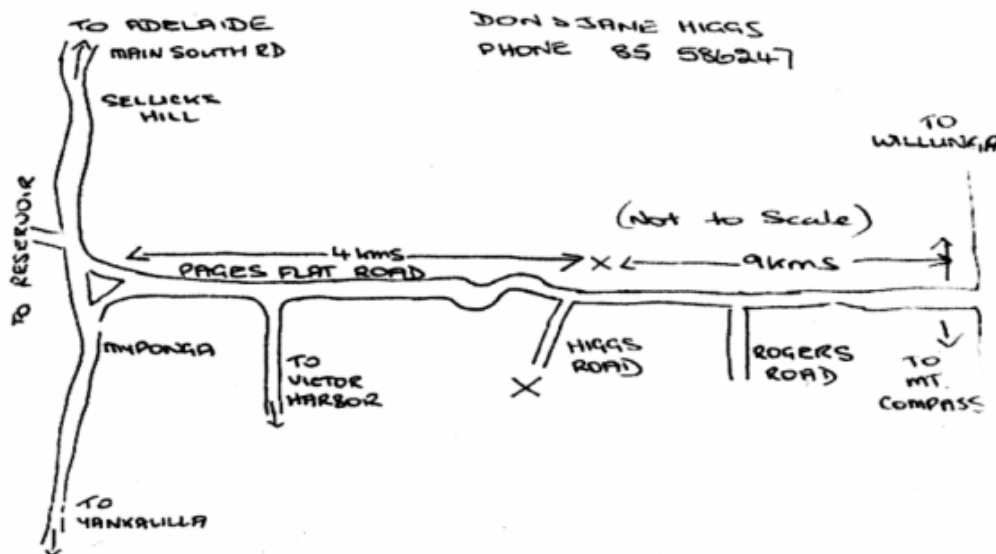 TO ADELAIDE
MAIN SOUTH RD
DON & JANE HIGGS
PHONE 85 586247
SELLICKS
HILL
TO
WILLUNGA
TO RESERVOIR
(Not to Scale)
4 kms
X
9 kms
PAGES FLAT ROAD
MYPONGA
TO
VICTOR
HARBOR
HIGGS
ROAD
X
ROGERS
ROAD
TO
MT.
COMPASS
TO
YANKALILLA